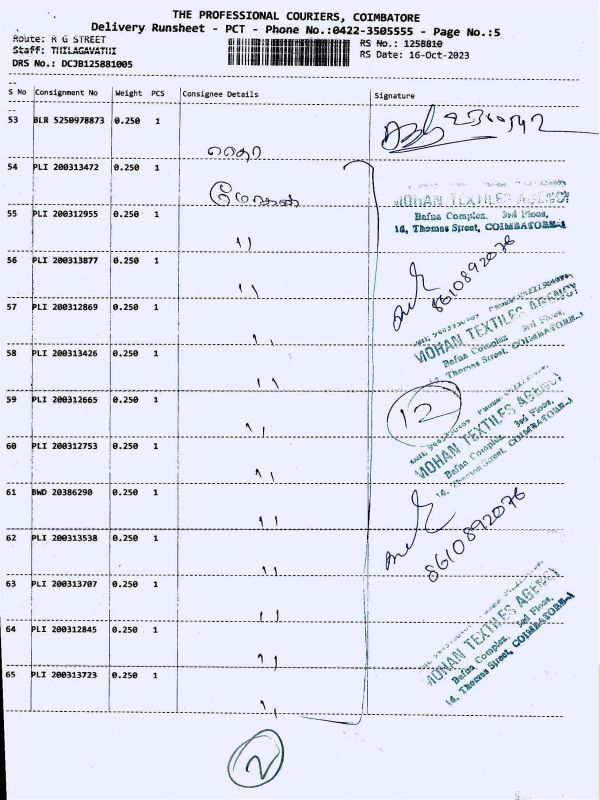 THE PROFESSIONAL COURIERS, COIMBATORE
Delivery Runsheet - PCT - Phone No.:0422-3505555 - Page No.:5
Route: R G STREET
RS No.: 1258810
Staff: THILAGAVATHI
RS Date: 16-Oct-2023
DRS No.: DCJB125881005
S No Consignment No Weight PCS Consignee Details Signature
53 BLR 5250978873 0.250 1
54 PLI 200313472 0.250 1
மோகன்
MOHAN TEXTILES AGENCY
Bafna Complex, 3rd Floor,
14, Thomas Street, COIMBATORE-1
55 PLI 200312955 0.250 1 11
56 PLI 200313877 0.250 1 11
8610892076
57 PLI 200312869 0.250 1 11
MOHAN TEXTILES AGENCY
Bafna Complex 3rd Floor,
14, Thomas Street, COIMBATORE-1
58 PLI 200313426 0.250 1 11
59 PLI 200312665 0.250 1 11
12
MOHAN TEXTILES AGENCY
Bafna Complex 3rd Floor,
14, Thomas Street, COIMBATORE-1
60 PLI 200312753 0.250 1 11
61 BWD 20386290 0.250 1 11
8610892076
62 PLI 200313538 0.250 1 11
63 PLI 200313707 0.250 1 11
64 PLI 200312845 0.250 1 11
MOHAN TEXTILES AGENCY
Bafna Complex, 3rd Floor,
14, Thomas Street, COIMBATORE-1
65 PLI 200313723 0.250 1 11
2